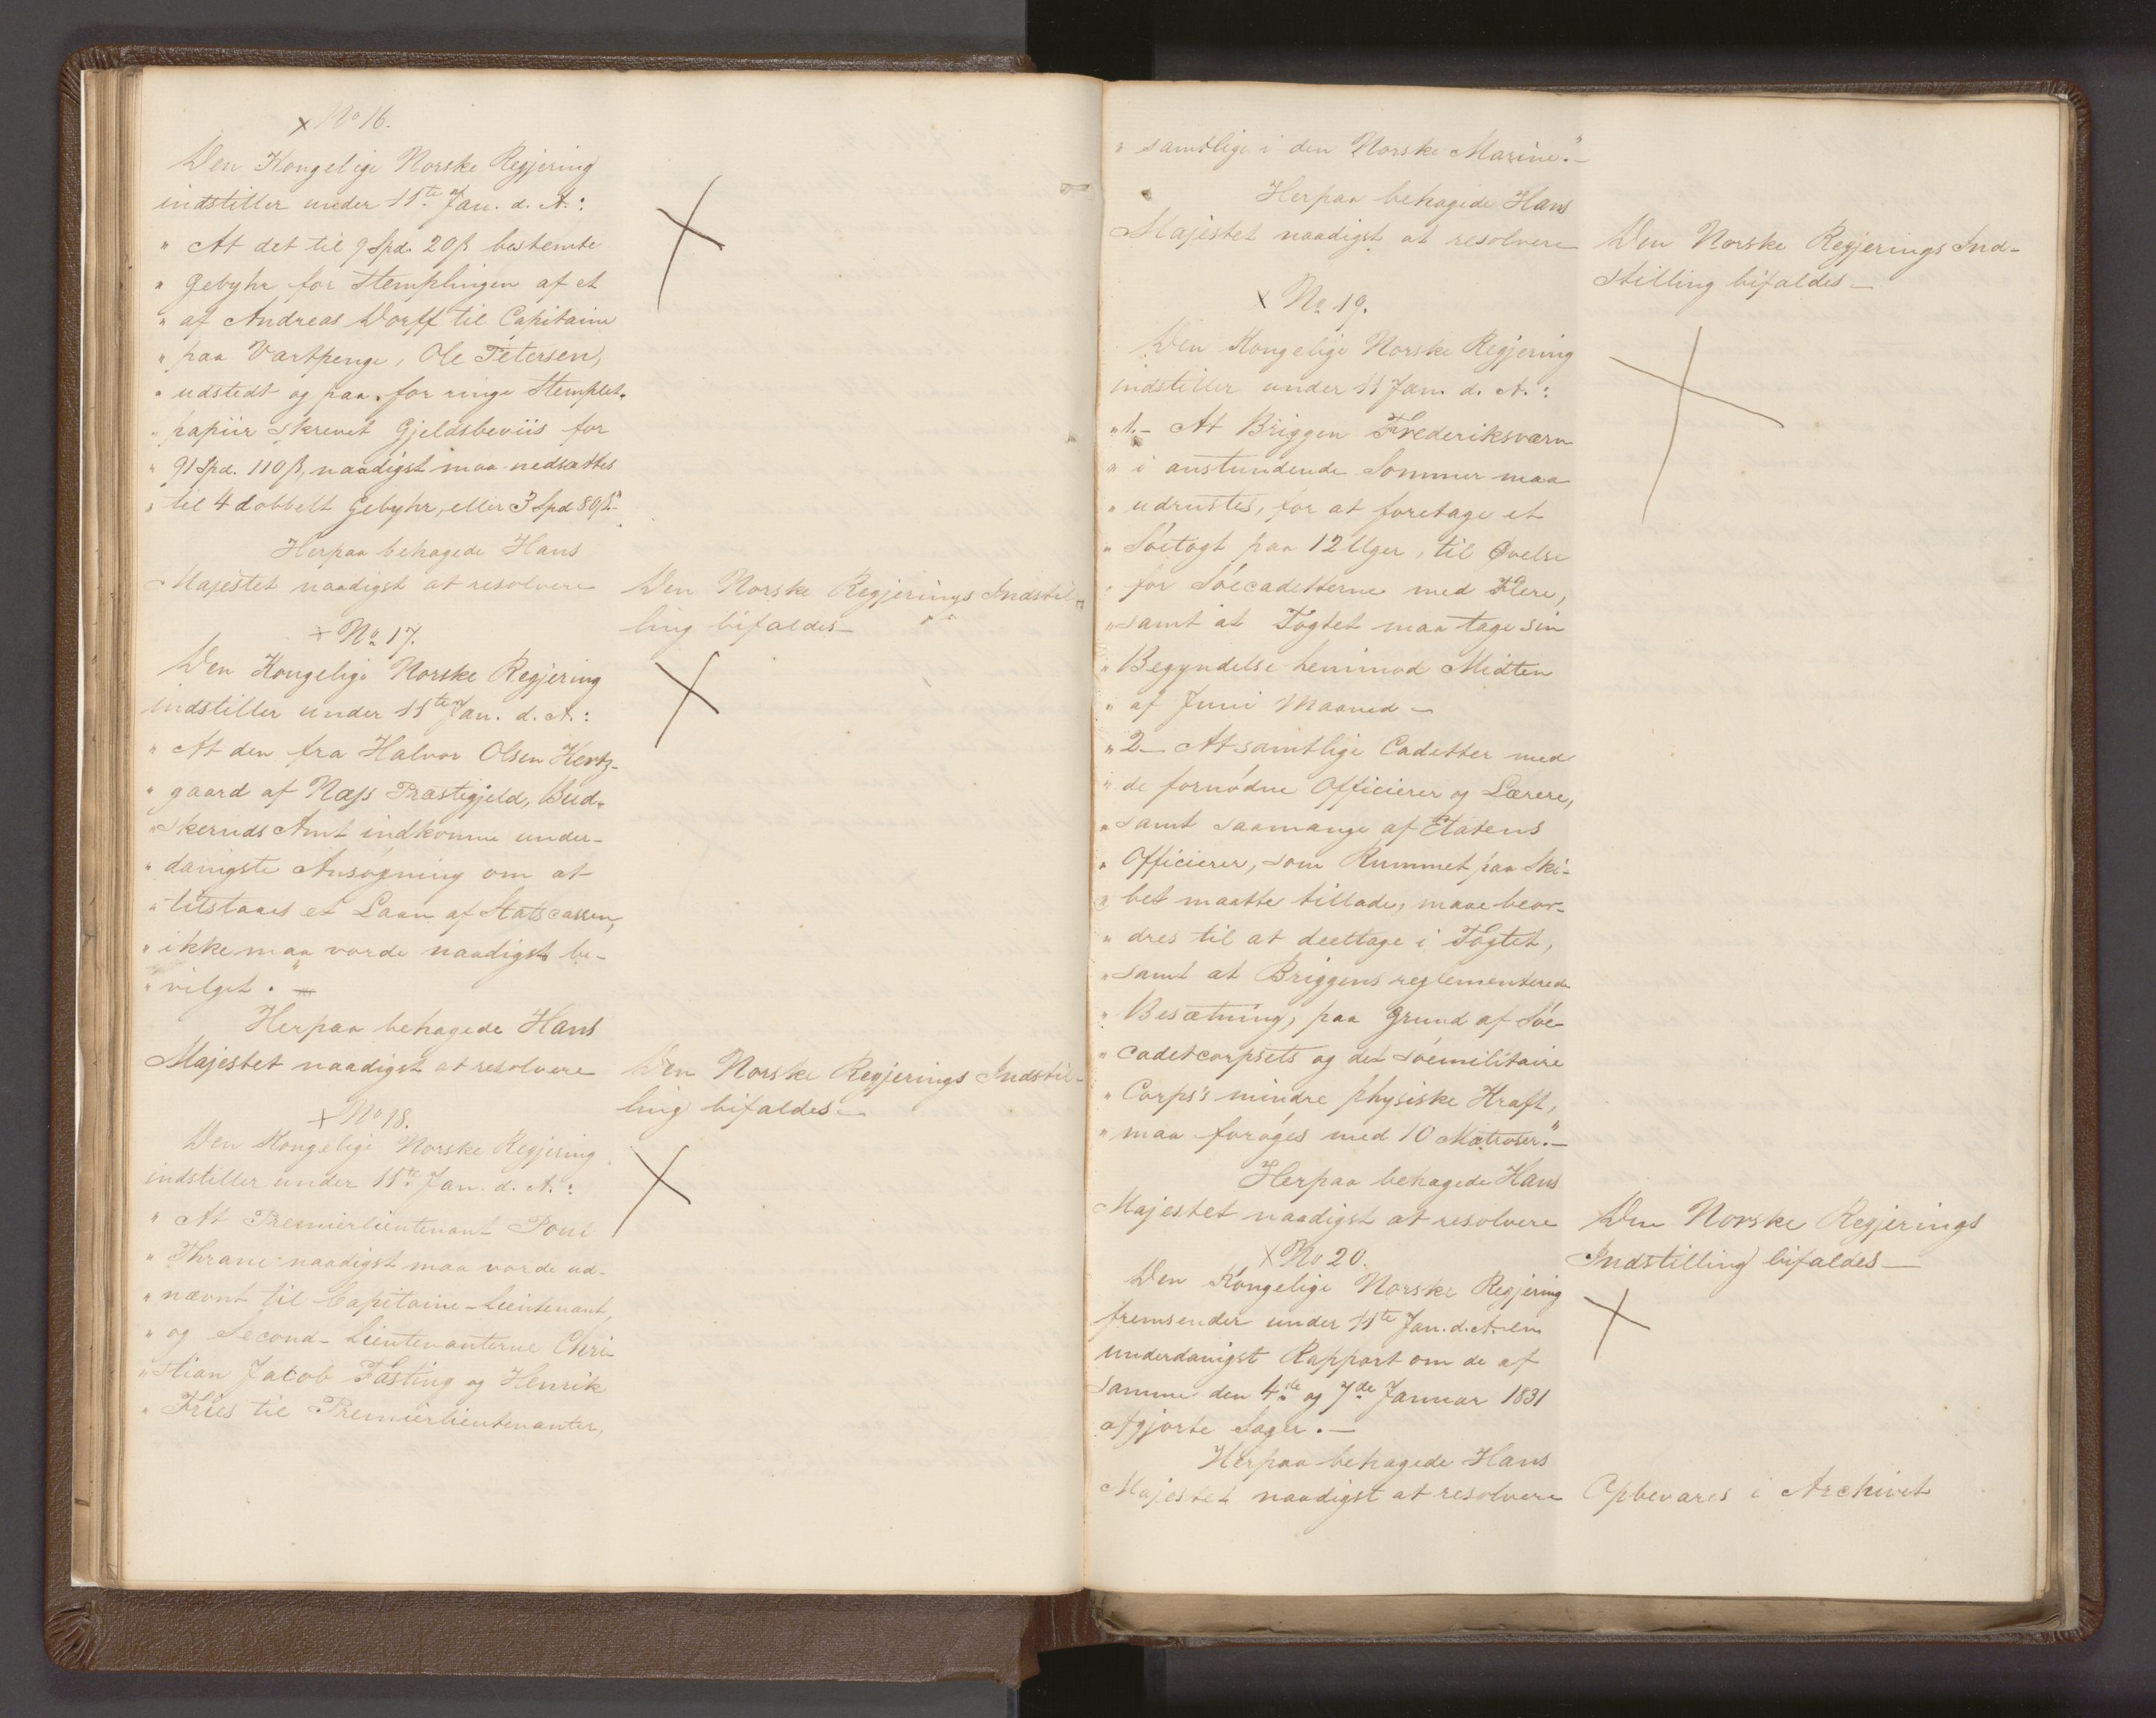 x No 16.
Den Kongelige Norske Regjering
indstiller under 11te Jan. d. A.:
" At det til 9 Spd. 20 β bestemte
" Gebyhr for Stemplingen af et
" af Andreas Dorff til Capitaine
" paa Vartpenge, Ole Petersen,
" udstedt og paa for ringe Stemplet-
" papiir skrevet Gjeldsbeviis for
" 91 Spd. 110 β, naadigst maa nedsættes
" til 4 dobbelt Gebyhr, eller 3 Spd 80 β"-
Herpaa behagede Hans
Majestet naadigst at resolvere
Den Norske Regjerings Indstil-
ling bifaldes-
x No 17.
Den Kongelige Norske Regjering
indstiller under 11te Jan. d. A.:
" At den fra Halvor Olsen Hertz-
" gaard af Næss Præstegjeld, Bud-
" skeruds Amt indkomne under-
" danigste Ansøgning om at
" tilstaaes et Laan af Statscassen,
" ikke maa vorde naadigst be-
" vilget." -
Herpaa behagede Hans
Majestet naadigst at resolvere
Den Norske Regjerings Indstil-
ling bifaldes-
x No 18.
Den Kongelige Norske Regjering
indstiller under 11te Jan. d. A.:
" At Premierlieutenant Poul
" Thrane naadigst maa vorde ud-
" nævnt til Capitaine-Lieutenant,
" og Second-Lieutenanterne Chri-
" stian Jacob Fasting og Henrik
" Fries til Premierlieutenanter,
" samtlige i den Norske Marine."-
Herpaa behagede Hans
Majestet naadigst at resolvere
Den Norske Regjerings Ind-
stilling bifaldes-
x No. 19.
Den Kongelige Norske Regjering
indstiller under 11 Jan. d. A.:
" 1.- At Briggen Frederiksværn
" i anstundende Sommer maa
" udrustes, for at foretage et
" Söetogt paa 12 Uger, til Øvelse
" for Söecadetterne med Flere,
" samt at Togtet maa tage sin
" Begyndelse henimod Midten
" af Juni Maaned-
" 2- At samtlige Cadetter med
" de fornödne Officierer og Lærere,
" samt saamange af Etatens
" Officierer, som Rummet paa Ski-
" bet maatte tillade, maae beor-
" dres til at deeltage i Togtet,
" samt at Briggens reglementerede
" Besætning, paa Grund af Söe-
" cadetcorpsets og det söemilitaire
" Corps's mindre physiske Kraft,
" maa foröges med 10 Matroser."-
Herpaa behagede Hans
Majestet naadigst at resolvere
Den Norske Regjerings
Indstilling bifaldes-
x No 20.
Den Kongelige Norske Regjering
fremsender under 11te Jan. d. A. en
underdanigst Rapport om de af
samme den 4de og 7de Januar 1831
afgjorte Sager.-
Herpaa behagede Hans
Majestet naadigst at resolvere
Opbevares i Archivet